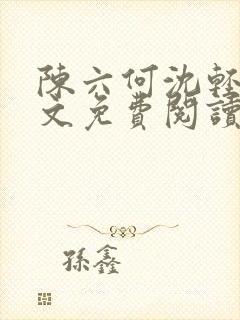 陳六何沈輕
文免費閱讀
孫鑫